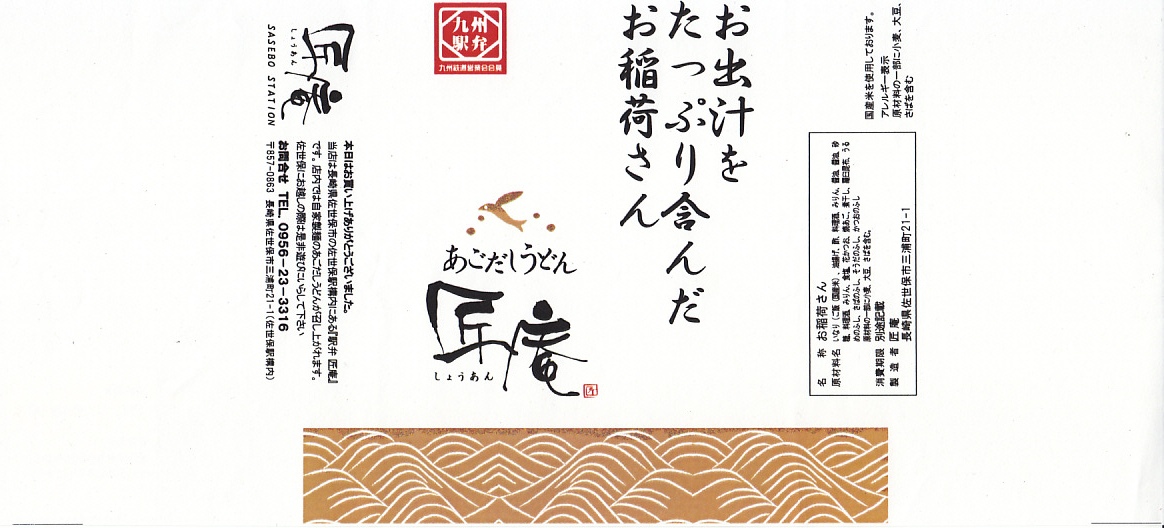 お出汁を
たっぷり含んだ
お稲荷さん
九州
駅弁
九州鉄道営業会会員
あごだしうどん
匠庵
しょうあん
匠
匠庵
しょうあん
SASEBO STATION
本日はお買い上げありがとうございました。
当店は長崎県佐世保市の佐世保駅構内にある『駅弁 匠庵』
です。店内では自家製麺のあごだしうどんが召し上がれます。
佐世保にお越しの際は是非遊びにいらして下さい
お問合せ TEL. 0956-23-3316
〒857-0863 長崎県佐世保市三浦町21-1(佐世保駅構内)
国産米を使用しております。
アレルギー表示
原材料の一部に小麦、大豆、
さばを含む
名称 お稲荷さん
原材料名 いなり(ご飯(国産米)、油揚げ、酢、料理酒、みりん、醤油、砂
糖、料理酒、みりん、食塩、花かつお、焼あご、煮干し、羅臼昆布、うる
めのふし、さばのふし、そうだのふし、かつおのふし
原材料の一部に小麦、大豆、さばを含む。
消費期限 別途記載
製造者 匠庵
長崎県佐世保市三浦町21-1